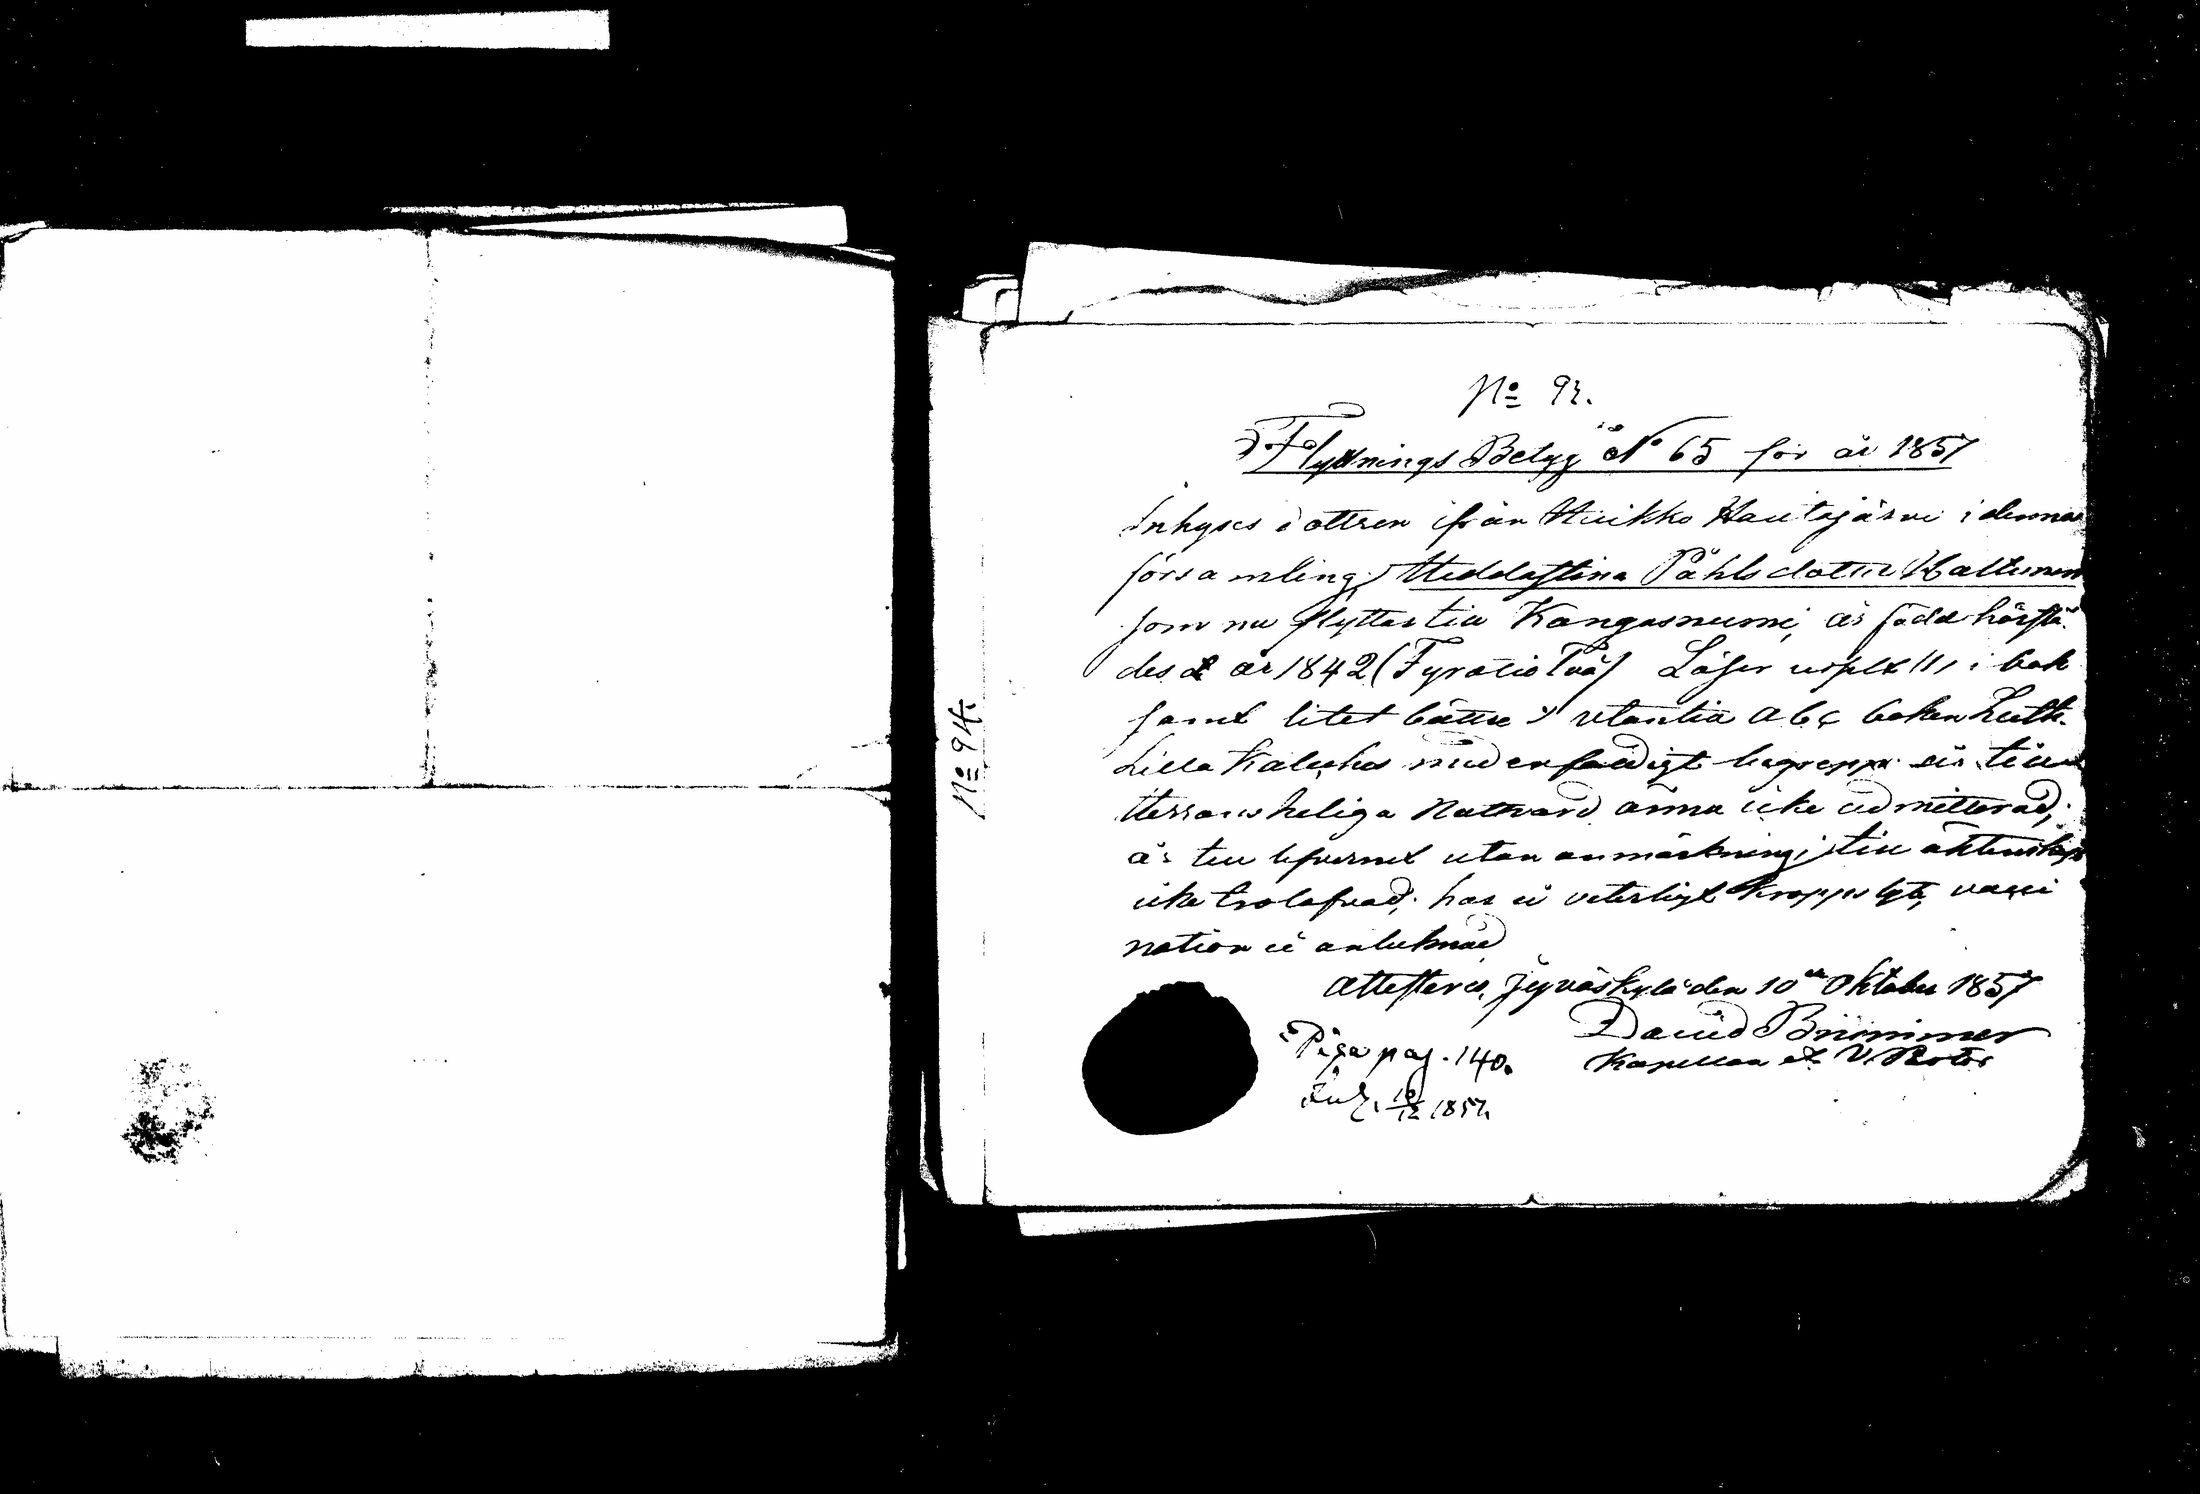 No 93.
Flyttnings Betyg No 65 för år 1857
Inhyses dottren ifrån Huikko Hautajärvi i denna
församling, Heddastina Påhlsdotter Hallunen
som nu flyttar till Kangasniemi, är född härstä-
des år 1842 (Fyratio Två) Läser uselt /// i bok
samt litet bättre utantill Abc boken Luth.
Lilla Kateches med enfaldigt begrepp är till
Herrans heliga Nattvard ännu icke admitterad;
är till lefvernet utan anmärkning; till äktenskap
icke trolofvad; har ei veterligt kropps lyte, vacci
nation ei antecknad
Attesteras, Jyväskylä den 10de Oktober 1857
David Brummer
Kapellan et V. Pastor
Piga pag. 140.
10/12 1857.
No 94.